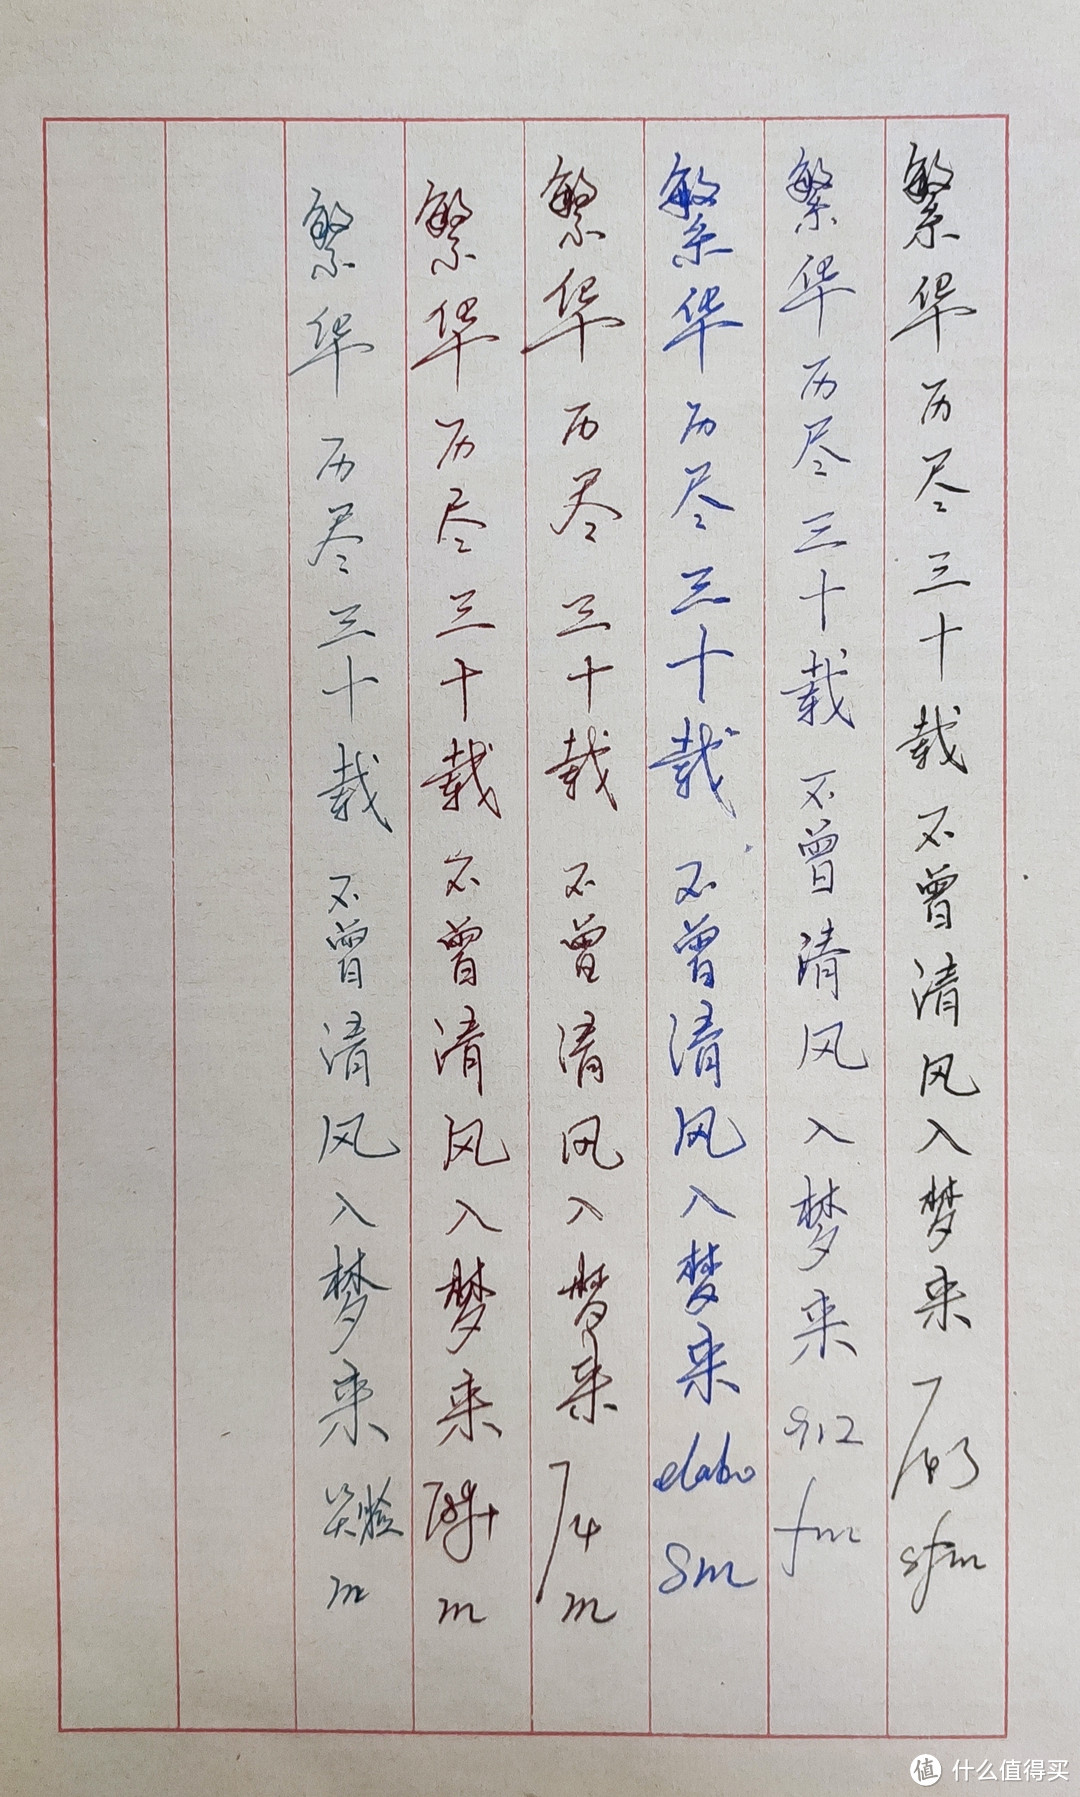 繁华历尽三十载不曾清风入梦来 743 sfm
繁华历尽三十载不曾清风入梦来 912 fm
繁华历尽三十载不曾清风入梦来 elabo sm
繁华历尽三十载不曾清风入梦来 74 m
繁华历尽三十载不曾清风入梦来 m
繁华历尽三十载不曾清风入梦来 笑脸 m
值 什么值得买